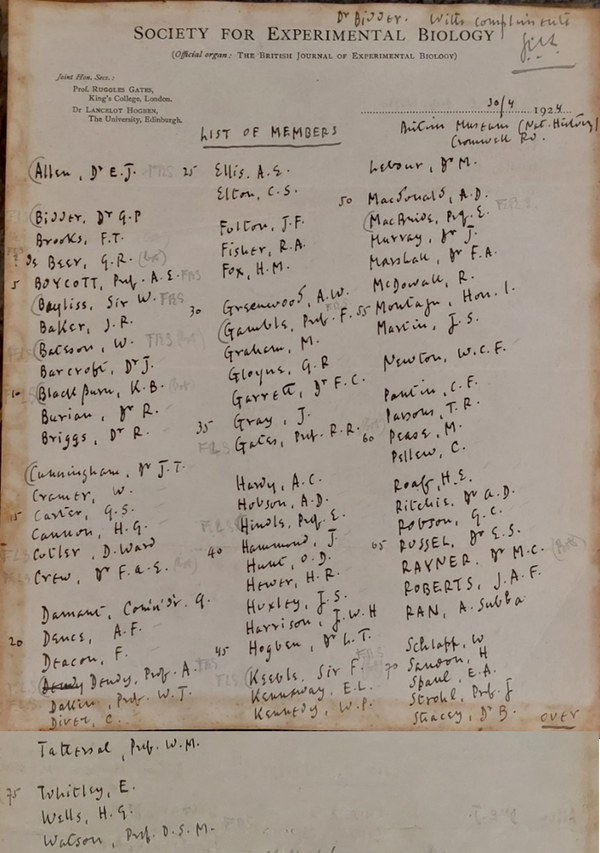 Dr Bidder. With compliments
SOCIETY FOR EXPERIMENTAL BIOLOGY
(Official organ: THE BRITISH JOURNAL OF EXPERIMENTAL BIOLOGY)
Joint Hon. Secs.:
Prof. RUGGLES GATES,
King's College, London.
Dr LANCELOT HOGBEN,
The University, Edinburgh.
30/4 1924
British Museum (Nat. History)
Cromwell Rd.
LIST OF MEMBERS
(Allen, Dr E.J. FRS
(Bidder, Dr G.P
Brooks, F.T.
de Beer, G.R. (bot)
5 BOYCOTT, Prof. A.E. FRS
(Bayliss, Sir W. FRS
Baker, J.R.
(Bateson, W. FRS (bot)
Barcroft, Dr J.
10 (Blackburn, K.B. (bot)
Burian, Dr R.
Briggs, Dr R.
(Cunningham, Dr J.T.
Cramer, W.
15 Carter, G.S.
Cannon, H.G.
Cutler, D. Ward
Crew, Dr F.A.E.
Damant, Comm'dr. G.
20 Dence, A.F.
Deacon, F.
Dendy, Prof. A. FRS
Dakin, Prof. W.J.
Diver, C.
25 Ellis, A.E.
Elton, C.S.
Fulton, J.F.
Fisher, R.A.
Fox, H.M.
30 Greenwood, A.W.
(Gamble, Prof. F. FRS
Graham, M.
Gloyne, G.R
Garrett, Dr F.C.
35 Gray, J.
Gates, Prof. R.R.
Hardy, A.C.
Hobson, A.D.
Hindle, Prof. E.
40 Hammond, J.
Hunt, O.D.
Hewer, H.R.
Huxley, J.S.
Harrison, J.W.H
45 Hogben, Dr L.T.
(Keeble, Sir F. FRS
Kennaway, E.L.
Kennedy, W.P.
Lebour, Dr M.
50 Macdonald, A.D.
(MacBride, Prof. E. FRS
Murray, Dr J.
Marshall, Dr F.A.
McDowall, R.
55 Montagu, Hon. I.
Martin, J.S.
Newton, W.C.F.
Pantin, C.F.
Parsons, T.R.
60 Pease, M.
Pellew, C.
Roaf, H.E.
Ritchie, Dr A.D.
Robson, G.C.
65 RUSSEL, Dr E.S.
RAYNER, Dr M.C. (Bot)
ROBERTS, J.A.F.
RAN, A. Subba
Schlapp, W
70 Sandon, H
Spaul, E.A.
Strohl, Prof. J
Stacey, Dr B.
OVER
Tattersal, Prof. W.M.
75 Whitley, E.
Wells, H.G.
Watson, Prof. D.S.M.